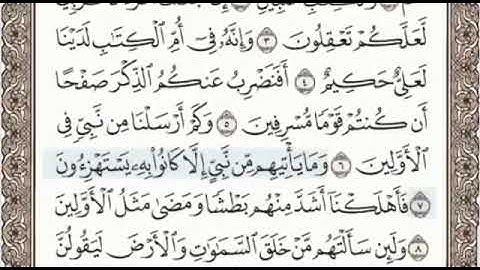 لَعَلَّكُمْ تَعْقِلُونَ ٣ وَإِنَّهُۥ فِىٓ أُمِّ ٱلْكِتَٰبِ لَدَيْنَا
لَعَلِىٌّ حَكِيمٌ ٤ أَفَنَضْرِبُ عَنكُمُ ٱلذِّكْرَ صَفْحًا
أَن كُنتُمْ قَوْمًا مُّسْرِفِينَ ٥ وَكَمْ أَرْسَلْنَا مِن نَّبِىٍّ فِى
ٱلْأَوَّلِينَ ٦ وَمَا يَأْتِيهِم مِّن نَّبِىٍّ إِلَّا كَانُوا۟ بِهِۦ يَسْتَهْزِءُونَ
٧ فَأَهْلَكْنَآ أَشَدَّ مِنْهُم بَطْشًا وَمَضَىٰ مَثَلُ ٱلْأَوَّلِينَ
٨ وَلَئِن سَأَلْتَهُم مَّنْ خَلَقَ ٱلسَّمَٰوَٰتِ وَٱلْأَرْضَ لَيَقُولُنَّ